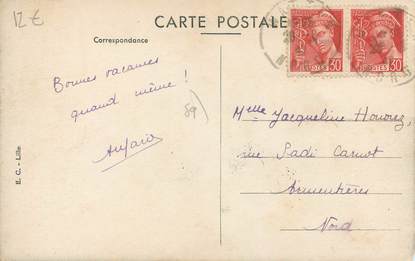 12 €
CARTE POSTALE
Correspondance
Bonnes vacances
quand même !
59)
E. C. - Lille
POSTES 30
POSTES 30
Melle Jacqueline
rue Sadi Carnot
Armentières
Nord